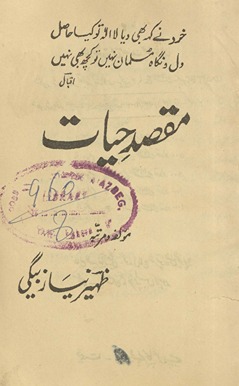 خرد نے کہہ بھی دیا لا الہ تو کیا حاصل
دل و نگاہ مسلماں نہیں تو کچھ بھی نہیں
اقبال
مقصدِ حیات
960
مولفہ و مرتبہ
ظہیر نیاز بیگی